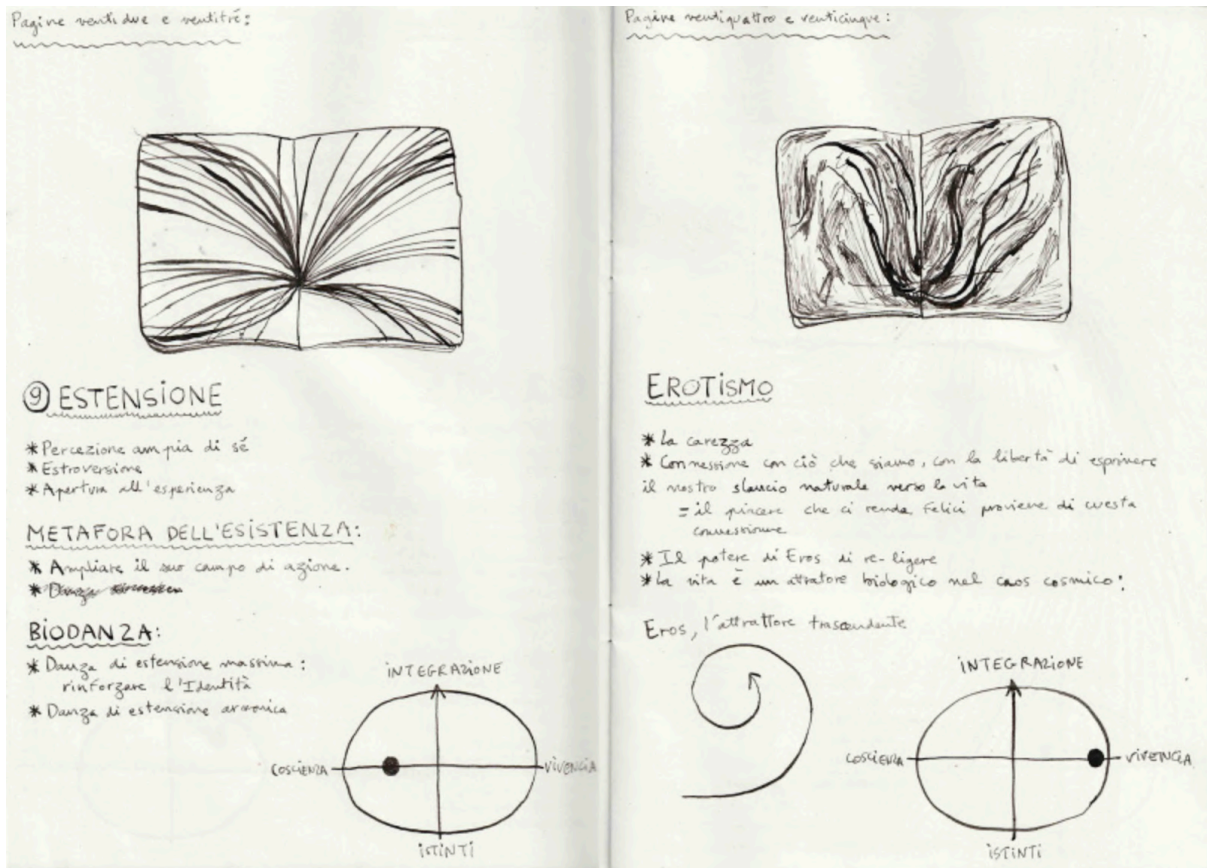 Pagine ventidue e ventitré:
⑨ ESTENSIONE
* Percezione ampia di sé
* Estroversione
* Apertura all'esperienza
METAFORA DELL'ESISTENZA:
* Ampliare il suo campo di azione.
* Danza
BIODANZA:
* Danza di estensione massima:
rinforzare l'Identità
* Danza di estensione armonica
INTEGRAZIONE
COSCIENZA
VIVENCIA
ISTINTI
Pagine ventiquattro e venticinque:
EROTISMO
* La carezza
* Connessione con ciò che siamo, con la libertà di esprimere
il nostro slancio naturale verso la vita
= il piacere che ci rende felici proviene di questa
connessione
* Il potere di Eros di re-ligere
* La vita è un attratore biologico nel caos cosmico:
Eros, l'attrattore trascendente
INTEGRAZIONE
COSCIENZA
VIVENCIA
ISTINTI